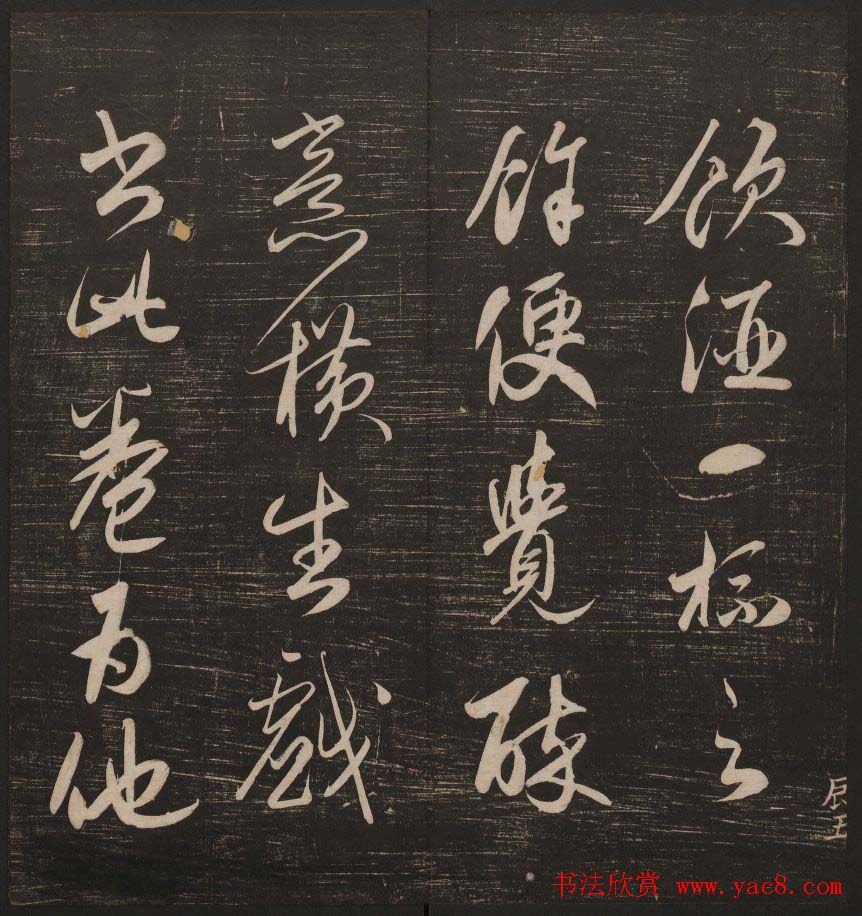 饮酒一杯之
馀便觉醉
意横生戏
书此卷为他
辰五
书法欣赏 www.yac8.com